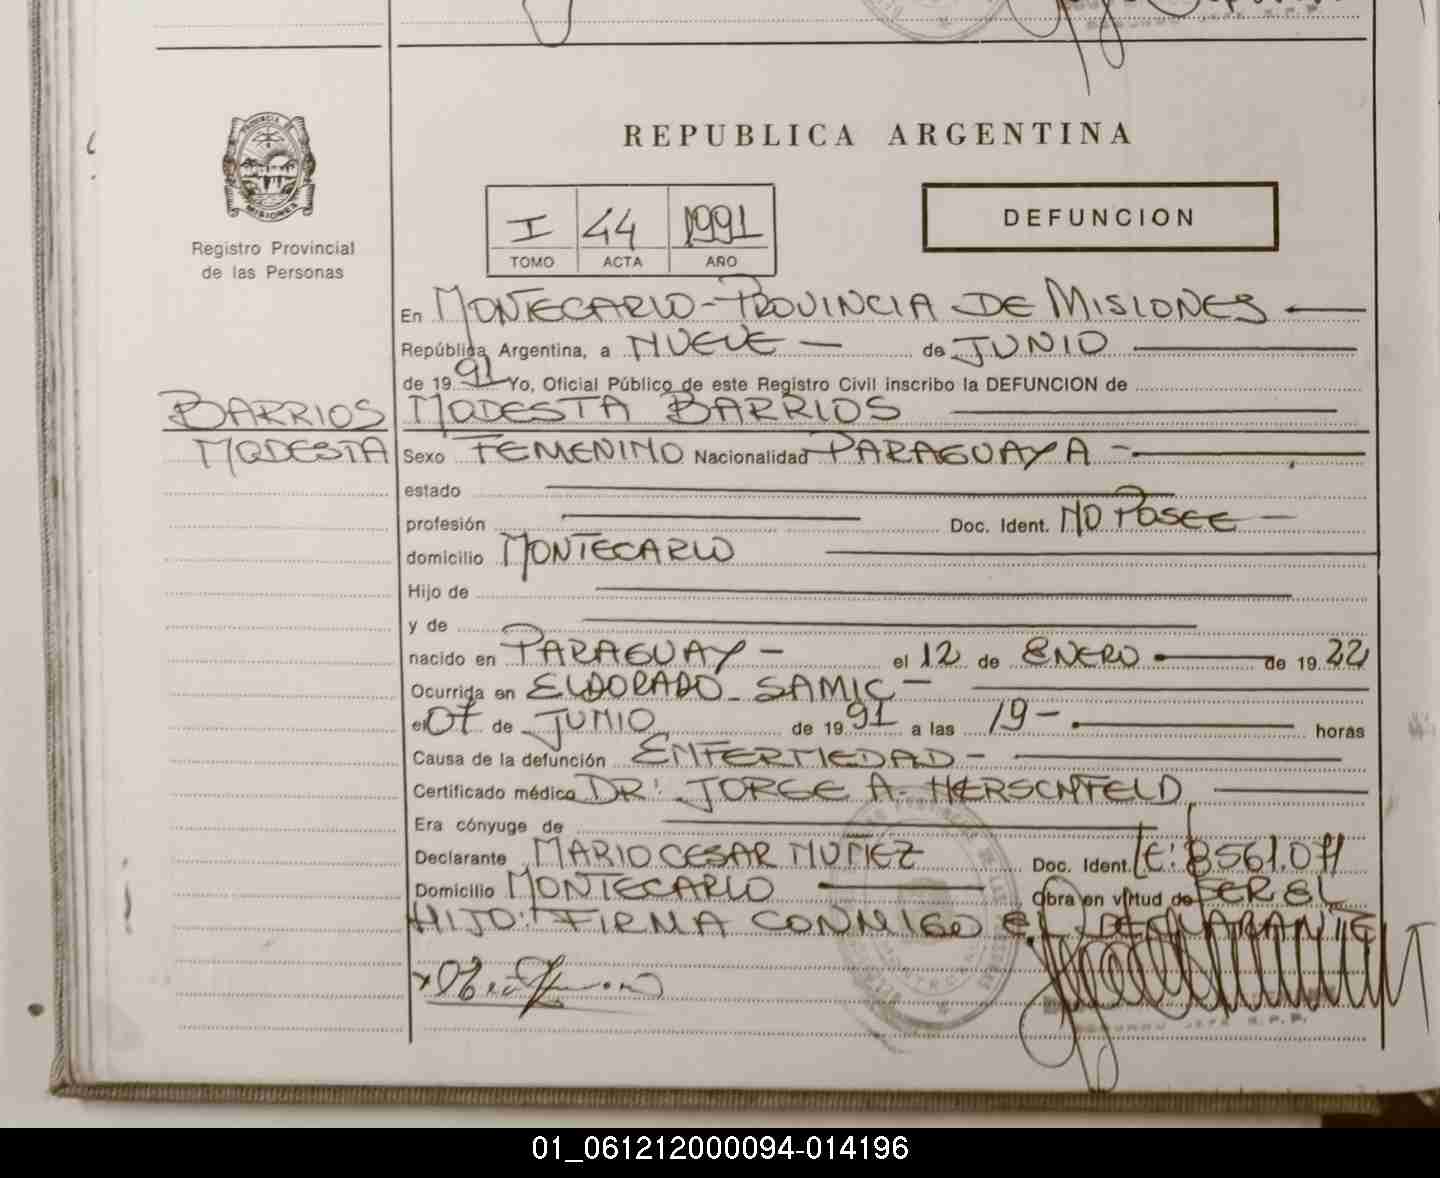 REPUBLICA ARGENTINA
PROVINCIA DE
MISIONES
Registro Provincial
de las Personas
I 44 1991
TOMO ACTA AÑO
DEFUNCION
En MONTECARLO - PROVINCIA DE MISIONES
República Argentina, a NUEVE - de JUNIO
de 1991 Yo, Oficial Público de este Registro Civil inscribo la DEFUNCION de
BARRIOS
MODESTA
MODESTA BARRIOS
Sexo FEMENINO Nacionalidad PARAGUAYA -
estado
profesión Doc. Ident. NO POSEE -
domicilio MONTECARLO
Hijo de
y de
nacido en PARAGUAY - el 12 de ENERO de 1922
Ocurrida en ELDORADO - SAMIC -
el 07 de JUNIO de 1991 a las 19 - horas
Causa de la defunción ENFERMEDAD -
Certificado médico DR: JORGE A. HERSCHFELD
Era cónyuge de
Declarante MARIO CESAR NUÑEZ Doc. Ident. LE: 8561.071
Domicilio MONTECARLO Obra en virtud de SER EL
HIJO: FIRMA CONMIGO EL DECLARANTE
01_061212000094-014196